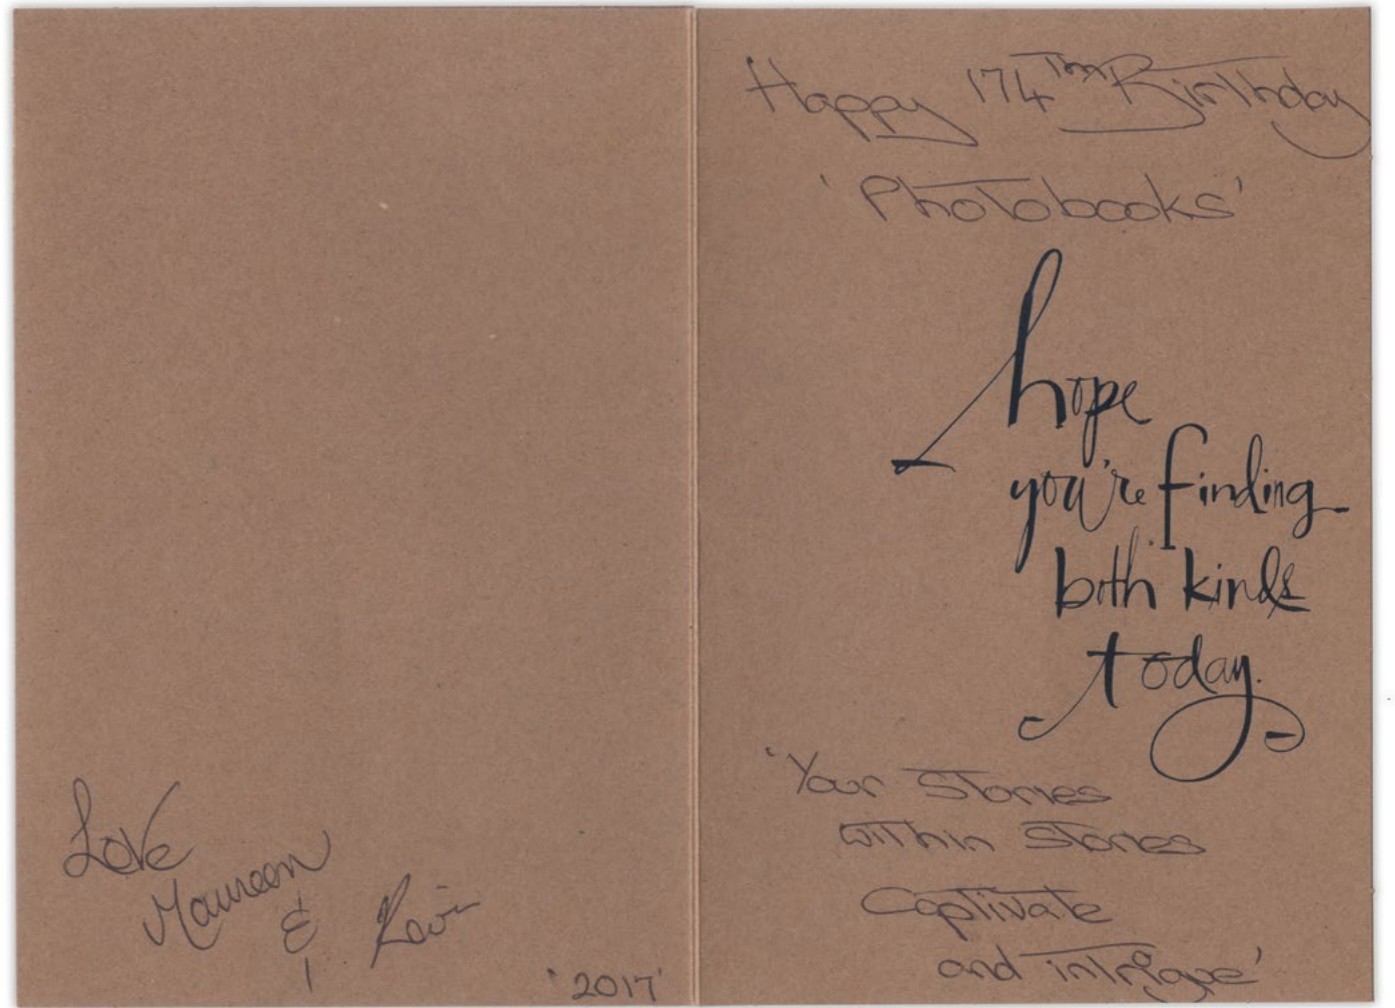 Love
Maureen
&
Kevin
'2017'
Happy 174TH Birthday
'Photobooks'
hope
you're finding
both kinds
today.
'Your Stories
within stories
Captivate
and intrigue'